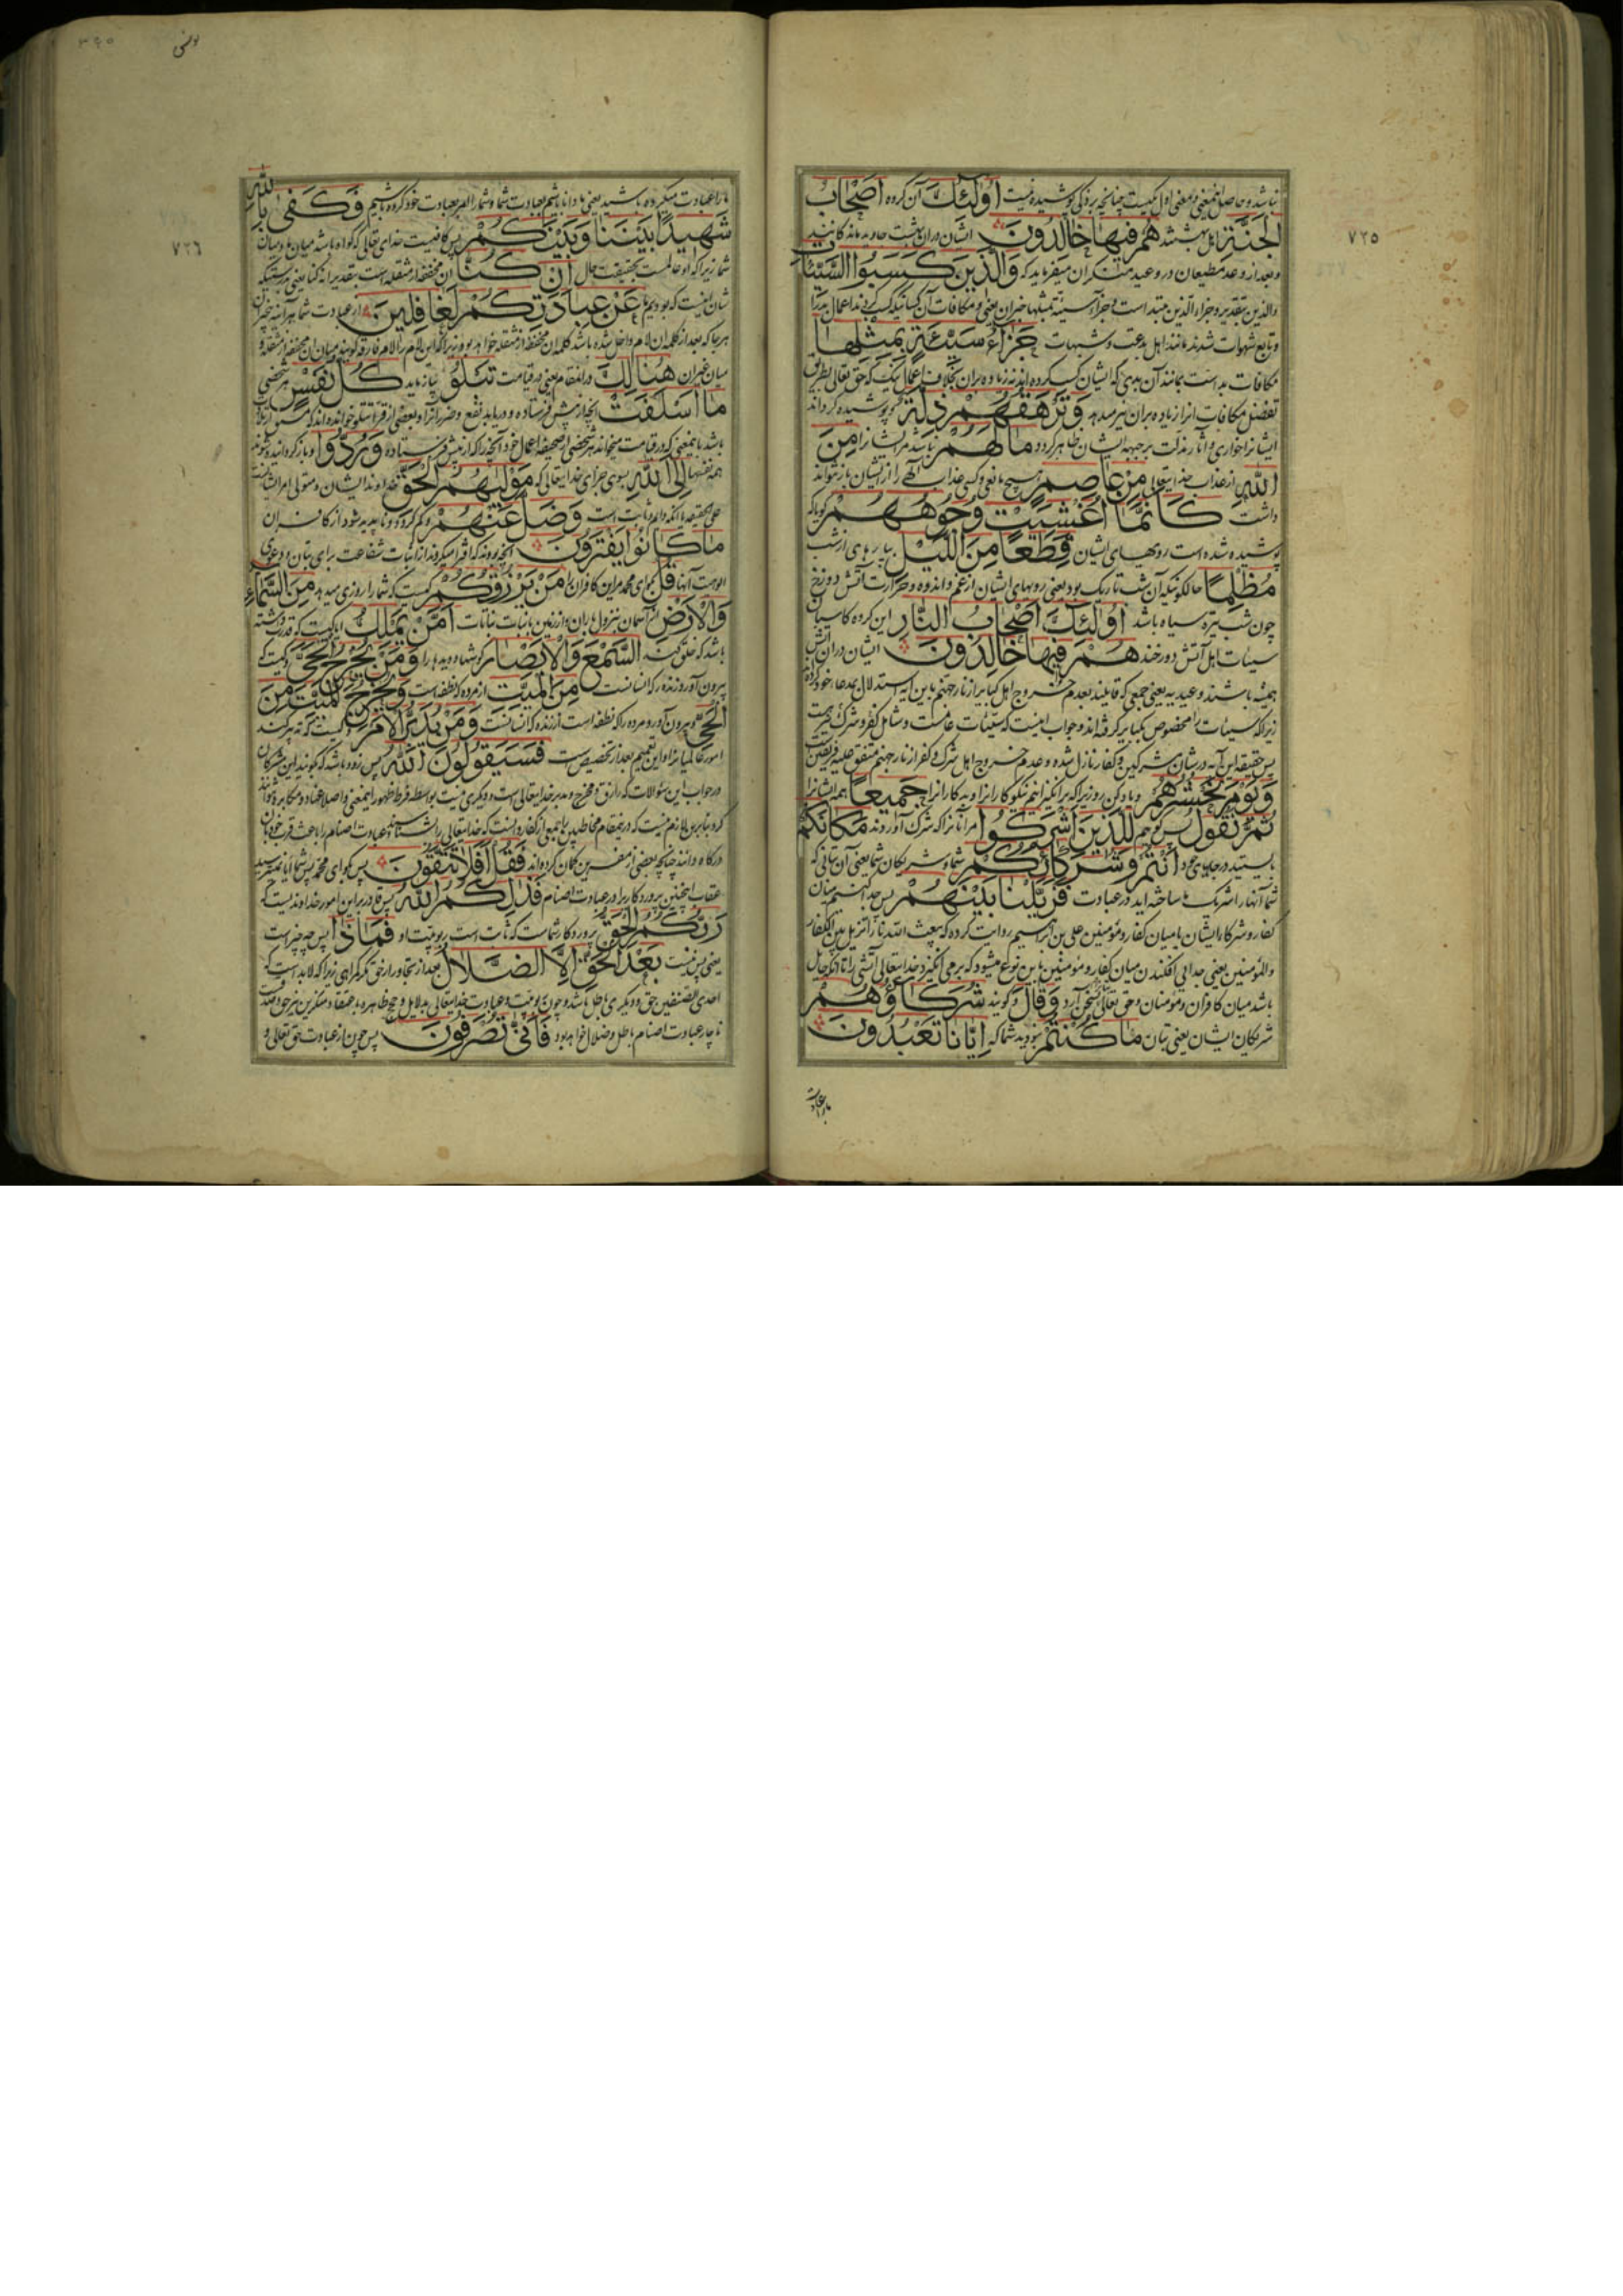 ٧٢٥
نباشد و حاصل اینمعنی و معنی اول یکیست چنانچه بر ذکی پوشیده نیست اُولٰئِكَ آن گروه اَصْحَابُ
الْجَنَّةِ اهل بهشتند هُمْ فِيهَا خَالِدُونَ ایشان در ان بهشت جاوید مانند کانند
و بعد از وعد مطیعان در وعید منکران میفرماید که وَالَّذِينَ كَسَبُوا السَّيِّئَاتِ
والذین بتقدیر و جزاء الذین مبتداست و جزاء سیئة بمثلها خبر ان یعنی و مکافات آن کسانیکه کسب کردند اعمال بد را
و تابع شهوات شدند مانند اهل بدعت و شبهات جَزَاءُ سَيِّئَةٍ بِمِثْلِهَا
مکافات بد است بمانند آن بدی که ایشان کسب کرده اند نه زیاده بران بخلاف اعمال نیک که حق تعالی بطریق
تفضل مکافات انرا زیاده بران نیز میدهد وَتَرْهَقُهُمْ ذِلَّةٌ و پوشیده گرداند
ایشانرا خواری و آثار مذلت بر جبهه ایشان ظاهر گردد مَا لَهُمْ نباشد مر ایشانرا مِنَ
اللّٰهِ از عذاب خدایتعالی مِنْ عَاصِمٍ هیچ مانعی و کسی عذاب الهی را از ایشان باز نتواند
داشت كَاَنَّمَا اُغْشِيَتْ وُجُوهُهُمْ گویا که
پوشیده شده است رویهای ایشان قِطَعًا مِنَ اللَّيْلِ بپارهای از شب
مُظْلِمًا حالکونیکه آن شب تاریک بود یعنی رویهای ایشان از غم و اندوه و حرارت آتش دوزخ
چون شب تیره سیاه باشد اُولٰئِكَ اَصْحَابُ النَّارِ این گروه کاسبان
سیئات اهل آتش دوزخند هُمْ فِيهَا خَالِدُونَ ایشان دران آتش
همیشه باشند وعیدیه یعنی جمعی که قایلند بعدم خروج اهل کبایر از نار جهنم باین آیه استدلال بمدعاء خود کرده
زیرا که سیئات را مخصوص بکبایر گرفته اند و جواب اینست که سیئات عامست و شامل کفر و شرک نیز هست
پس حقیقة این آیه در شان مشرکین و کفار نازل شده و عدم خروج اهل شرک و کفر از نار جهنم متفق علیه فریقین
وَيَوْمَ نَحْشُرُهُمْ و یاد کن روزیرا که برانگیزانیم نیکوکارانرا و بدکارانرا جَمِيعًا همه ایشانرا
ثُمَّ نَقُولُ پس گوییم لِلَّذِينَ اَشْرَكُوا مر آنانرا که شرک آوردند مَكَانَكُمْ
بایستید در جایهای خود اَنْتُمْ وَشُرَكَاؤُكُمْ شما و شریکان شما یعنی آن بتانی که
شما آنها را شریک ما ساخته اید در عبادت فَزَيَّلْنَا بَيْنَهُمْ پس جدا کنیم میان
کفار و شرکا ایشان یا میان کفار و مؤمنین علی بن ابراهیم روایت کرده که یبعث الله نارا تزیل بین الکفار
والمؤمنین یعنی جدایی افکندن میان کفار و مؤمنین باین نوع میشود که برمی انگیزد خدایتعالی آتشی را تا آنکه حایل
باشد میان کافران و مؤمنان و حق تعالی بسخن آرد وَقَالَ و گویند شُرَكَاؤُهُمْ
شریکان ایشان یعنی بتان مَا كُنْتُمْ نبودید شما که اِيَّانَا تَعْبُدُونَ
ما را عبادت
یونس
٧٢٦
ما را عبادت میکرده باشید یعنی ما دانا باشیم بعبادت شما و شما را امر بعبادت خود کرده باشیم فَكَفَى بِاللّٰهِ
شَهِيدًا بَيْنَنَا وَبَيْنَكُمْ پس کافیست خدای تعالی که گواه باشد میان ما و میان
شما زیرا که او عالمست بحقیقت حال اِنْ كُنَّا ان مخففه از مثقله است بتقدیر انه کنا یعنی بدرستیکه
شان اینست که بودیم ما عَنْ عِبَادَتِكُمْ لَغَافِلِينَ از عبادت شما هر آینه بیخبران
هر جا که بعد از کلمه ان لام داخل شده باشد کلمه ان مخففه از مثقله خواهد بود زیرا که این لام را لام فارقه گویند میان ان مخففه از مثقله و
میان غیر ان هُنَالِكَ در انمقام یعنی در قیامت تَبْلُو بیازماید كُلُّ نَفْسٍ هر شخصی
مَا اَسْلَفَتْ آنچه از پیش فرستاده و دریابد نفع و ضرر آنرا و بعضی از قراء تتلو خوانده اند که مشتق از تلاوت
باشد باینمعنی که در قیامت میخواند هر شخصی از صحیفه اعمال خود آنچه را که از پیش فرستاده وَرُدُّوا و بازگردانیده شوند
همه نفسها اِلَى اللّٰهِ بسوی جزای خدایتعالی که مَوْلٰيهُمُ الْحَقِّ خداوند ایشان و متولی امر ایشانست
علی الحقیقه یا آنکه دایم و ثابت است وَضَلَّ عَنْهُمْ و گم گردد و ناپدید شود از کافران
مَا كَانُوا يَفْتَرُونَ آنچه بودند که افترا میکردند از اثبات شفاعت برای بتان و دعوی
الوهیت آنها قُلْ بگو ای محمد مر این کافران را مَنْ يَرْزُقُكُمْ کیست که شما را روزی میدهد مِنَ السَّمَاءِ
وَالْاَرْضِ از آسمان بنزول باران و از زمین بانبات نباتات اَمَّنْ يَمْلِكُ ایا کیست که قدرت داشته
باشد که خلق کند السَّمْعَ وَالْاَبْصَارَ گوشها و دیدها را وَمَنْ يُخْرِجُ الْحَيَّ و کیست که
بیرون آورد زنده را که انسانست مِنَ الْمَيِّتِ از مرده که نطفه است وَيُخْرِجُ الْمَيِّتَ مِنَ
الْحَيِّ و بیرون آورد مرده را که نطفه است از زنده که انسانست وَمَنْ يُدَبِّرُ الْاَمْرَ و کیست که تدبیر کند
امور عالمیانرا و این تعمیم بعد از تخصیص ست فَسَيَقُولُونَ اللّٰهُ پس زود باشد که بگویند این مشرکان
در جواب این سؤالات که رازق و مخرج و مدبر خدایتعالی است و دیگری نیست بواسطه فرط ظهور اینمعنی و اصلا عناد و مکابره نتوانند
کرد بنابرین لازم نیست که درینمقام مخاطبین با جمعی از کفار دانست که خدایتعالی را شناسند عبادت اصنام را باعث قرب خود بان
درگاه دانند چنانچه بعضی از مفسرین گمان کرده اند فَقُلْ اَفَلَا تَتَّقُونَ پس بگو ای محمد پس شما آیا نمیترسید
عقاب اینچنین پروردگار را در عبادت اصنام فَذٰلِكُمُ اللّٰهُ پس قادر بر این امور خداوندیست که
رَبُّكُمُ الْحَقُّ پروردگار شماست که ثابت است ربوبیت او فَمَاذَا پس چه چیز است
یعنی پس نیست بَعْدَ الْحَقِّ اِلَّا الضَّلَالُ بعد از تجاوز از حق مگر گمراهی زیرا که لابد است که
احدی الصنفین حق و دیگری باطل باشد و چون ربوبیت و عبادت خدایتعالی بدلایل و حجج ظاهره باعتقاد منکرین نیز حق باشد
ناچار عبادت اصنام باطل و ضلال خواهد بود فَاَنَّى تُصْرَفُونَ پس چون از عبادت حق تعالی و